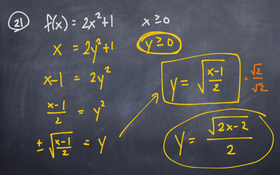 21 f(x) = 2x² + 1   x ≥ 0
x = 2y² + 1   y ≥ 0
x - 1 = 2y²
(x-1)/2 = y²
± √((x-1)/2) = y
y = √((x-1)/2) · √2/√2
y = √(2x-2)/2